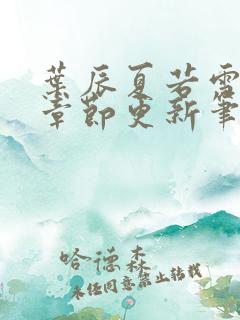 葉辰夏若雪
章節更新筆
哈德森
未經同意禁止转載